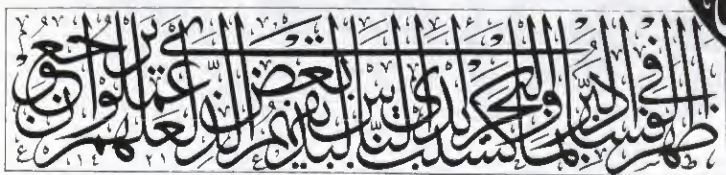 ظهر الفساد في البر والبحر بما كسبت أيدي الناس ليذيقهم بعض الذي عملوا لعلهم يرجعون